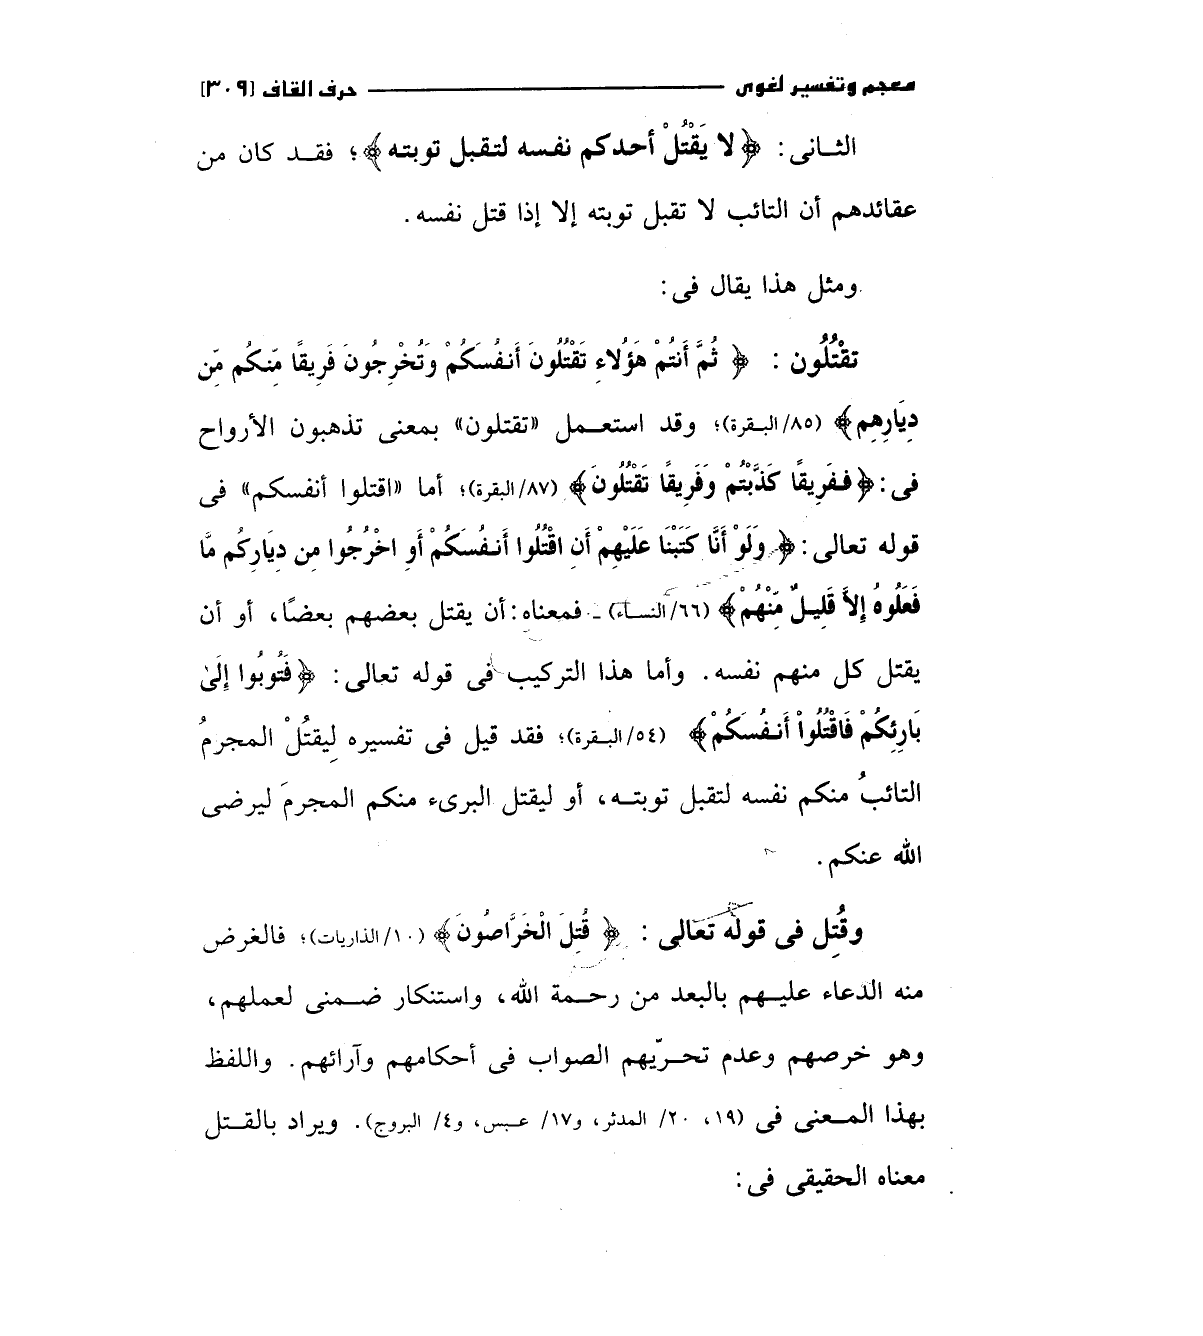 معجم وتفسير لغوى ـــــــ حرف القاف [٣٠٩]
الثانى: ﴿لا يَقْتُلْ أحدكم نفسه لتقبل توبته﴾؛ فقد كان من
عقائدهم أن التائب لا تقبل توبته إلا إذا قتل نفسه.
ومثل هذا يقال فى:
تقْتُلُون: ﴿ثُمَّ أَنتُمْ هَؤُلاءِ تَقْتُلُونَ أَنفُسَكُمْ وَتُخْرِجُونَ فَرِيقًا مِّنكُم مِّن
دِيَارِهِم﴾ (٨٥/ البقرة)؛ وقد استعمل «تقتلون» بمعنى تذهبون الأرواح
فى: ﴿فَفَرِيقًا كَذَّبْتُمْ وَفَرِيقًا تَقْتُلُونَ﴾ (٨٧/ البقرة)؛ أما «اقتلوا أنفسكم» فى
قوله تعالى: ﴿وَلَوْ أَنَّا كَتَبْنَا عَلَيْهِمْ أَنِ اقْتُلُوا أَنفُسَكُمْ أَوِ اخْرُجُوا مِن دِيَارِكُم مَّا
فَعَلُوهُ إِلاَّ قَلِيلٌ مِّنْهُمْ﴾ (٦٦/ النساء) ـ فمعناه: أن يقتل بعضهم بعضًا، أو أن
يقتل كل منهم نفسه. وأما هذا التركيب فى قوله تعالى: ﴿فَتُوبُوا إِلَىٰ
بَارِئِكُمْ فَاقْتُلُواْ أَنفُسَكُمْ﴾ (٥٤/ البقرة)؛ فقد قيل فى تفسيره لِيقتُلْ المجرمُ
التائبُ منكم نفسه لتقبل توبته، أو ليقتل البرىء منكم المجرمَ ليرضى
الله عنكم.
وقُتِل فى قوله تعالى: ﴿قُتِلَ الْخَرَّاصُونَ﴾ (١٠/ الذاريات)؛ فالغرض
منه الدعاء عليهم بالبعد من رحمة الله، واستنكار ضمنى لعملهم،
وهو خرصهم وعدم تحرّيهم الصواب فى أحكامهم وآرائهم. واللفظ
بهذا المعنى فى (١٩، ٢٠/ المدثر، و١٧/ عبس، و٤/ البروج). ويراد بالقتل
معناه الحقيقى فى: